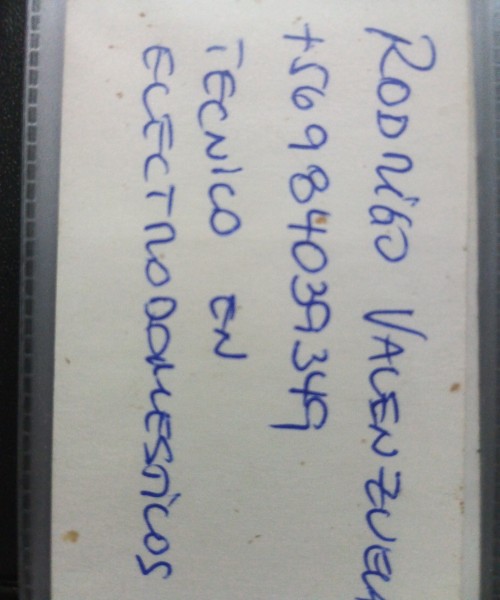 RODRIGO VALENZUELA
+56984039349
TECNICO EN
ELECTRODOMESTICOS